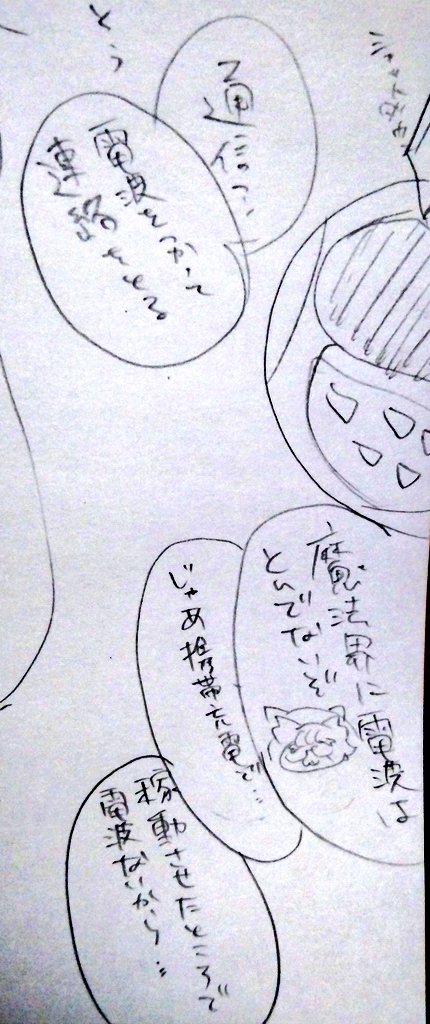 通信って…
電波をつかって
連絡をとる
魔法界に電波は
とんでないぞ
じゃあ携帯充電で…
稼動させたところで
電波ないから…